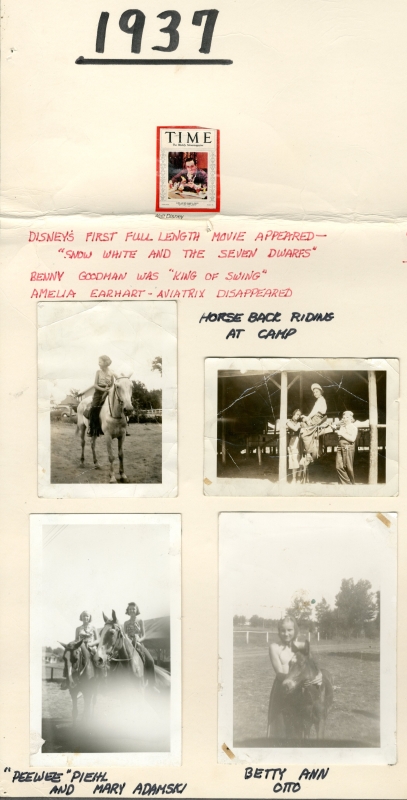 1937
TIME
Walt Disney
DISNEY'S FIRST FULL LENGTH MOVIE APPEARED—
"SNOW WHITE AND THE SEVEN DWARFS"
BENNY GOODMAN WAS "KING OF SWING"
AMELIA EARHART - AVIATRIX DISAPPEARED
HORSE BACK RIDING
AT CAMP
"PEEWEE" PIEHL
AND MARY ADAMSKI
BETTY ANN
OTTO